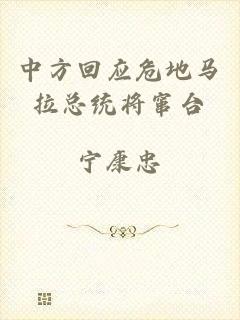 中方回应危地马
拉总统将窜台
宁康忠